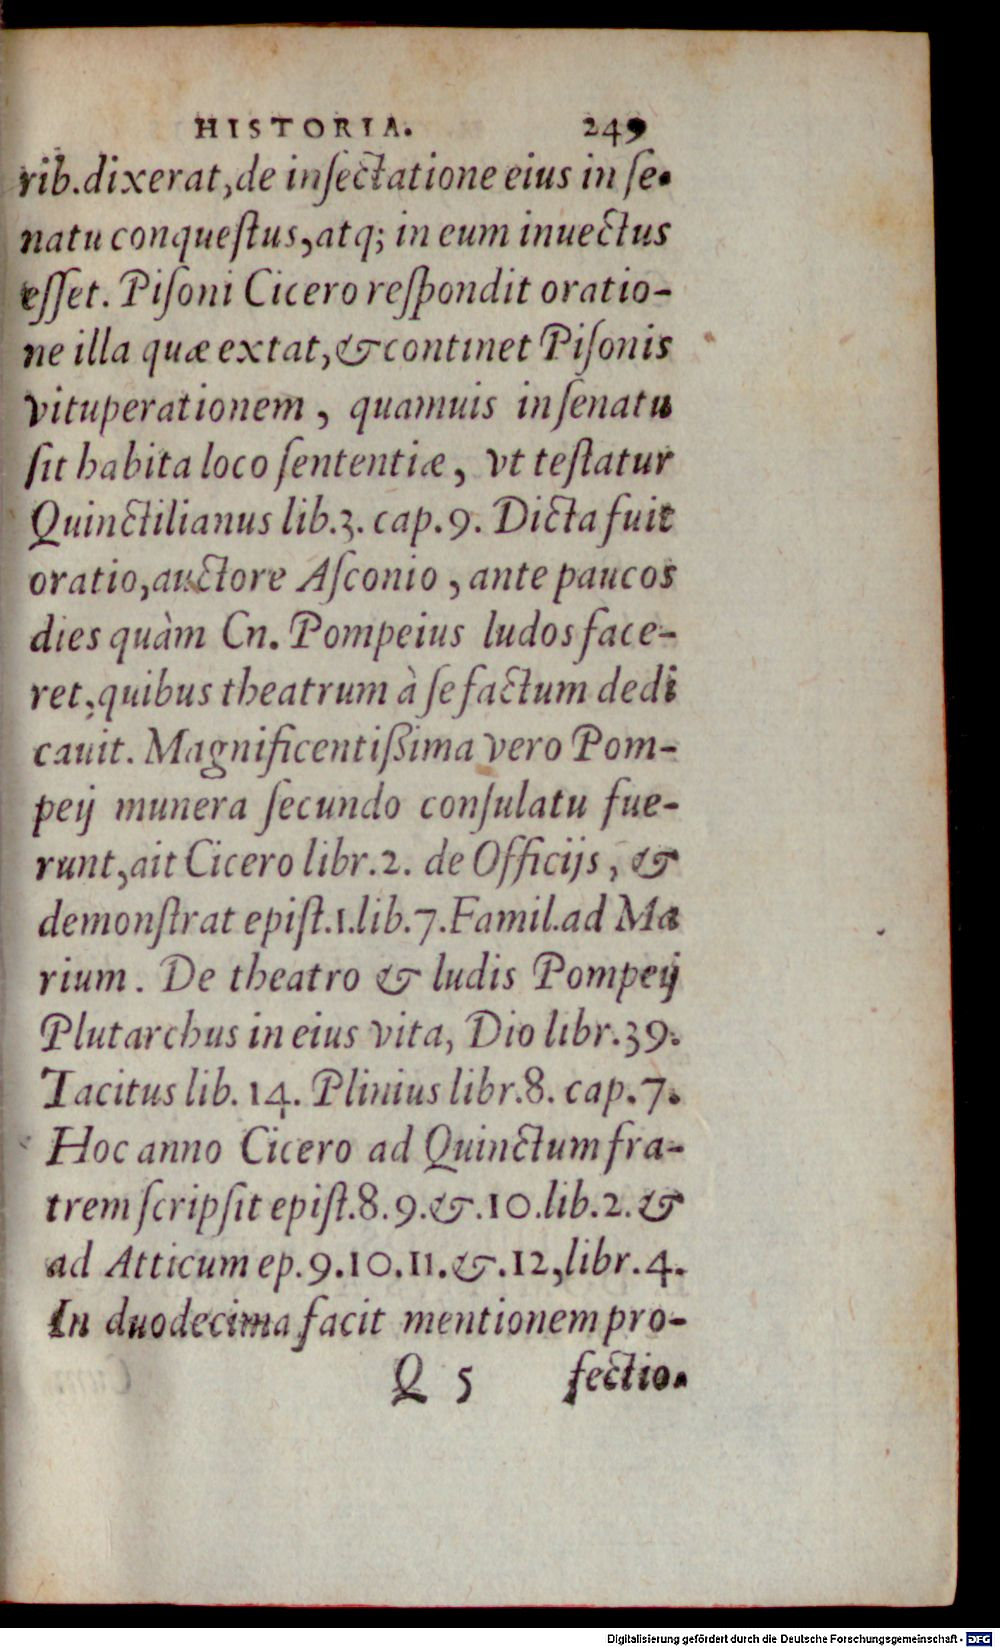 HISTORIA. 249
rib.dixerat,de insectatione eius in se-
natu conquestus,atq; in eum inuectus
esset. Pisoni Cicero respondit oratio-
ne illa quæ extat,& continet Pisonis
vituperationem, quamuis in senatu
sit habita loco sententiæ, vt testatur
Quinctilianus lib.3. cap.9. Dicta fuit
oratio,auctore Asconio, ante paucos
dies quàm Cn. Pompeius ludos face-
ret,quibus theatrum à se factum dedi
cauit. Magnificentißima vero Pom-
peij munera secundo consulatu fue-
runt,ait Cicero libr.2. de Officijs, &
demonstrat epist.1.lib.7.Famil.ad Ma
rium. De theatro & ludis Pompeij
Plutarchus in eius vita, Dio libr.39.
Tacitus lib. 14. Plinius libr.8. cap.7.
Hoc anno Cicero ad Quinctum fra-
trem scripsit epist.8.9.&.10.lib.2.&
ad Atticum ep.9.10.11.&.12,libr.4.
In duodecima facit mentionem pro-
Q 5 fectio-
Digitalisierung gefördert durch die Deutsche Forschungsgemeinschaft - DFG